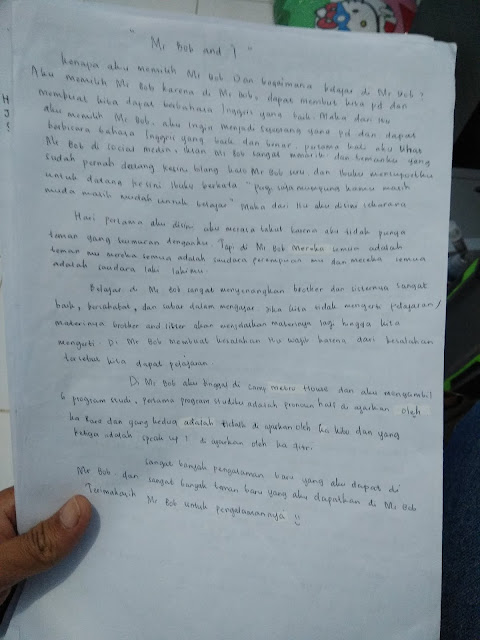 " Mr Bob and I "
kenapa aku memilih Mr Bob Dan bagaimana belajar di Mr Bob ?
Aku memilih Mr Bob karena di Mr Bob, dapat membuat kita pd dan
membuat kita dapat berbahasa Inggris yang baik. Maka dari itu
aku memilih Mr Bob. aku ingin menjadi seseorang yang pd dan dapat
berbicara bahasa Inggris yang baik dan benar. pertama kali aku lihat
Mr Bob di social media, iklan Mr Bob sangat menarik dan temanku yang
sudah pernah datang kesini bilang kalo Mr Bob seru dan Ibuku mensupportku
untuk datang kesini Ibuku berkata " Pergi saja mumpung kamu masih
muda masih mudah untuk belajar " Maka dari itu aku disini sekarang
Hari pertama aku disini aku merasa takut karena aku tidak punya
teman yang seumuran denganku. Tapi di Mr Bob mereka semua adalah
teman mu mereka semua adalah saudara perempuan mu dan mereka semua
adalah saudara laki lakimu.
Belajar di Mr Bob sangat menyenangkan brother dan sisternya sangat
baik, bersahabat, dan sabar dalam mengajar. Jika kita tidak mengerti pelajaran /
materinya brother and sister akan menjelaskan materinya lagi hingga kita
mengerti. Di Mr Bob membuat kesalahan itu wajib karena dari kesalahan
tersebut kita dapat pelajaran.
Di Mr Bob aku tinggal di camp metro House dan aku mengambil
program studi. pertama program studiku adalah pronoun di ajarkan oleh
ka dan yang kedua adalah di ajarkan oleh ka dan yang
ketiga adalah speak up di ajarkan oleh ka fitri.
sangat banyak pengalaman baru yang aku dapat di
Mr Bob dan sangat banyak teman baru yang aku dapatkan di Mr Bob
Terimakasih Mr Bob untuk pengalamannya !!